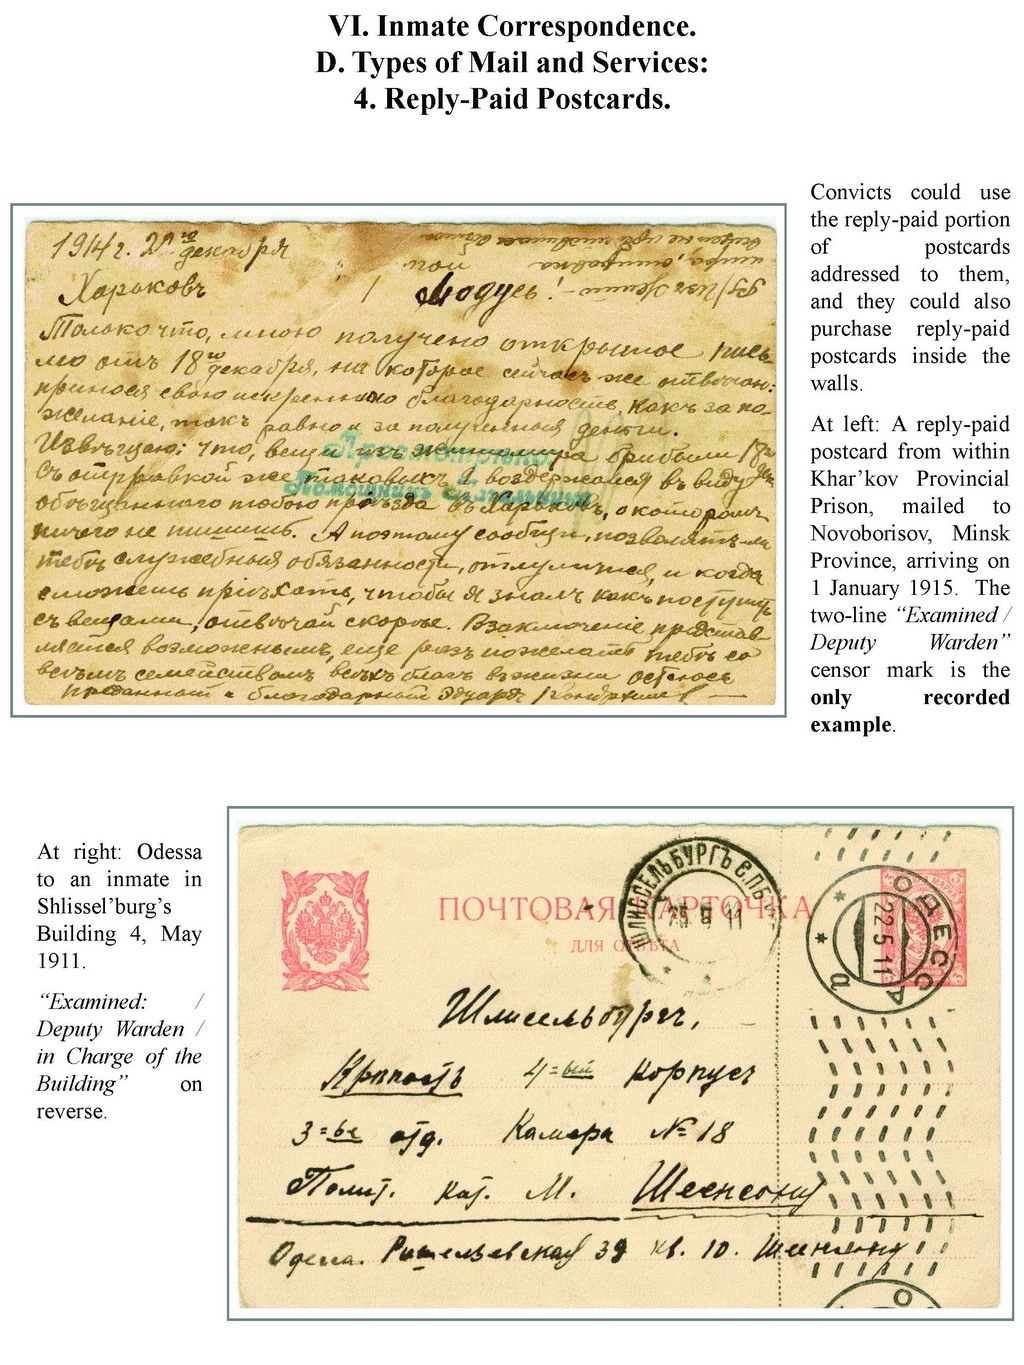 VI. Inmate Correspondence.
D. Types of Mail and Services:
4. Reply-Paid Postcards.
Convicts could use
the reply-paid portion
of postcards
addressed to them,
and they could also
purchase reply-paid
postcards inside the
walls.
At left: A reply-paid
postcard from within
Khar'kov Provincial
Prison, mailed to
Novoborisov, Minsk
Province, arriving on
1 January 1915. The
two-line “Examined /
Deputy Warden”
censor mark is the
only recorded
example.
1914 г. декабря
Харьковъ
Только что, мною получено открытое пись-
мо отъ 18го декабря, на которое сейчасъ же отвѣчаю:
принося свою искреннюю благодарность, какъ за по-
желаніе, такъ равно и за полученныя деньги.
Извѣщаю: что, вещи изъ прибыли
Съ отправкой же таковыхъ я воздержался въ виду
обѣщаннаго тобою проѣзда въ Харьковъ, о которомъ
ничего не пишишь. А поэтому сообщи, позволятъ-ли
тебѣ служебныя обязанности, отлучится, и когда
сможешь пріѣхать, чтобы я зналъ какъ поступить
съ вещами, отвѣчай скорѣе. Взаключеніе представ
ляется возможнымъ, еще разъ пожелать тебѣ со
всѣмъ семействомъ всѣхъ благъ въ жизни остаюсь
преданный и благодарный Эдуардъ
Просмотрѣно
Помощникъ Начальника
At right: Odessa
to an inmate in
Shlissel'burg's
Building 4, May
1911.
“Examined: /
Deputy Warden /
in Charge of the
Building” on
reverse.
ПОЧТОВАЯ КАРТОЧКА
ДЛЯ ОТВѢТА
ШЛИССЕЛЬБУРГЪ С.П.Б.
25 5 11
ОДЕССА
22 5 11
а
Шлиссельбургъ,
Крѣпость 4=ый корпусъ
3=ье отд. Камера № 18
Полит. кат. М. Шеенсону
Одесса. Ришельевская 39 кв. 10.